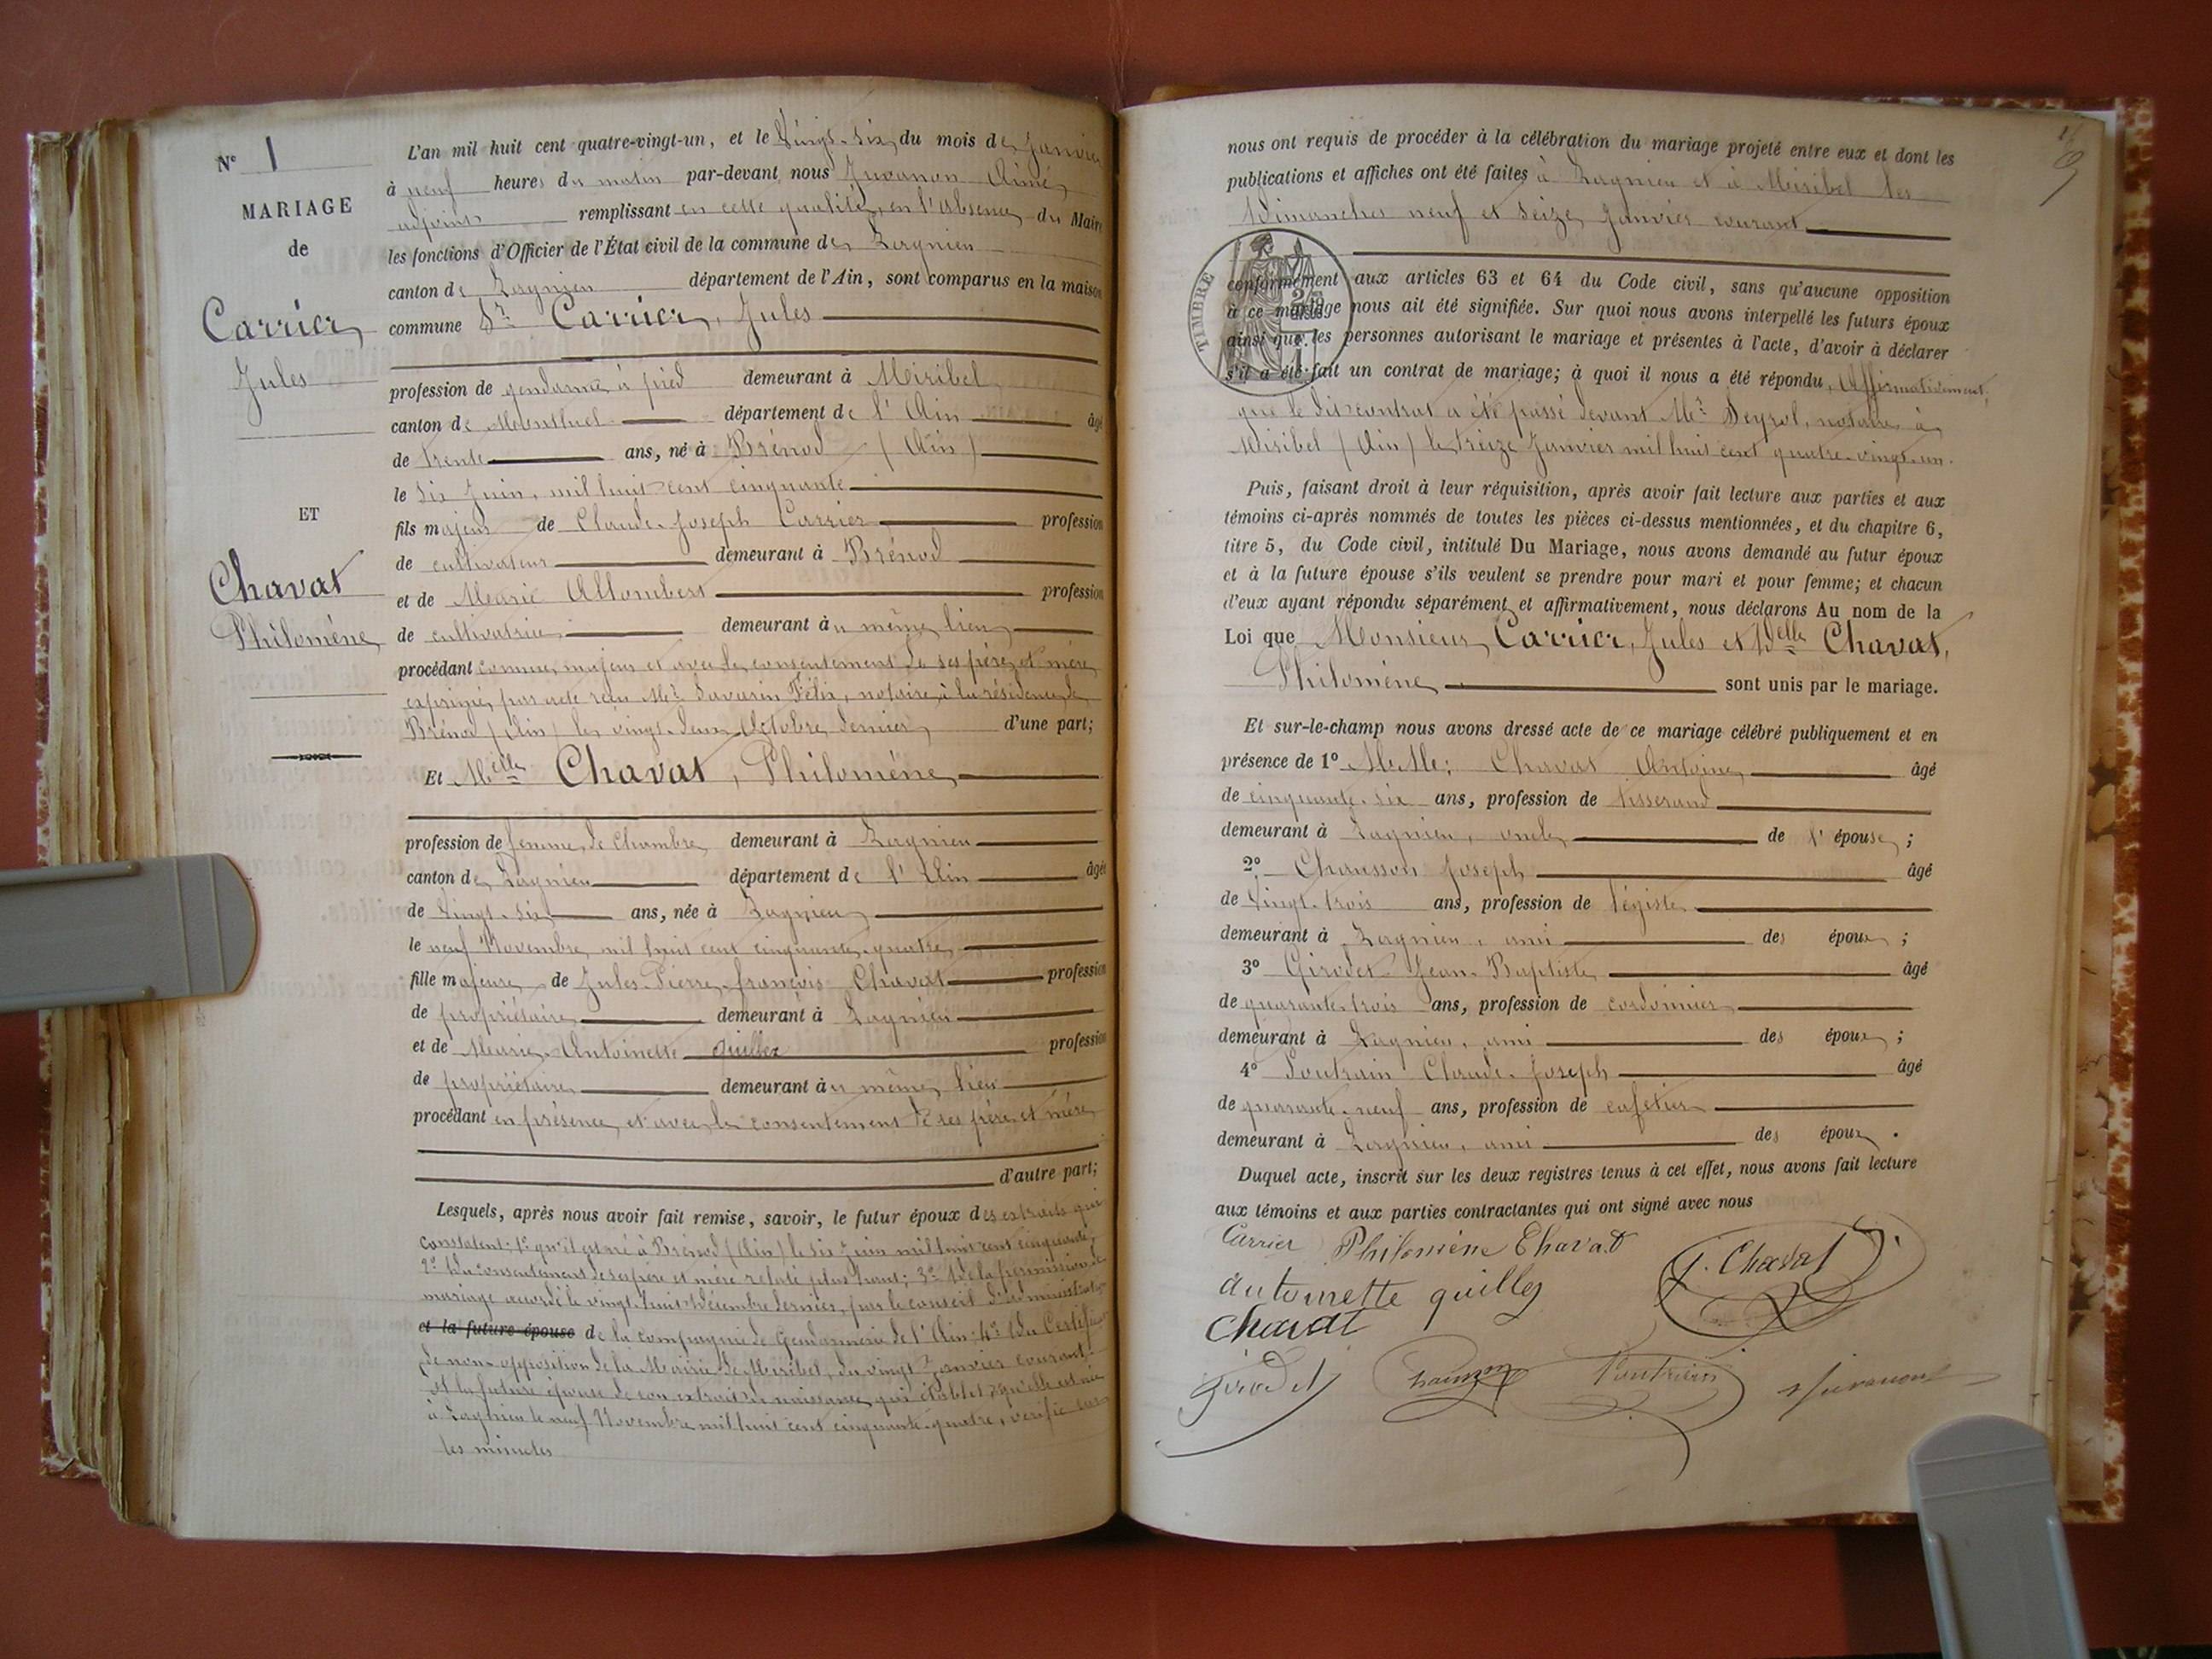 N° 1
MARIAGE
de
Carrier
Jules
ET
Chavat
Philomène
L'an mil huit cent quatre-vingt-un, et le Vingt-six du mois de Janvier
à neuf heures du matin par-devant nous Juvanon Aimé,
adjoint remplissant en cette qualité, en l'absence du Maire
les fonctions d'Officier de l'État civil de la commune de Lagnieu
canton de Lagnieu département de l'Ain, sont comparus en la maison
commune Sr. Carrier, Jules
profession de gendarme à pied demeurant à Miribel
canton de Montluel département de l'Ain âgé
de trente ans, né à Brénod (Ain)
le six Juin, mil huit cent cinquante
fils majeur de Claude-Joseph Carrier profession
de cultivateur demeurant à Brénod
et de Marie Allombert profession
de cultivatrice demeurant au même lieu
procédant comme majeur et avec le consentement de ses père et mère
exprimé par acte reçu Me. Savarin Félix, notaire à la résidence de
Brénod (Ain) le vingt-deux Octobre dernier d'une part;
Et Melle Chavat, Philomène
profession de femme de Chambre demeurant à Lagnieu
canton de Lagnieu département de l'Ain âgée
de Vingt-six ans, née à Lagnieu
le neuf Novembre mil huit cent cinquante-quatre
fille majeure de Jules-Pierre-françois Chavat profession
de propriétaire demeurant à Lagnieu
et de Marie-Antoinette quilles profession
de propriétaire demeurant au même lieu
procédant en présence et avec le consentement de ses père et mère
d'autre part;
Lesquels, après nous avoir fait remise, savoir, le futur époux des extraits qui
constatent: 1° qu'il est né à Brénod (Ain) le six Juin mil huit cent cinquante,
2° Du consentement de ses père et mère relaté plus haut; 3° De la permission de
mariage accordé le vingt-huit Décembre dernier, par le conseil d'administration
et la future épouse de la compagnie de Gendarmerie de l'Ain; 4° Du Certificat
de non-opposition de la Mairie de Miribel, du vingt Janvier courant
et la future épouse de son extrait de naissance qui établit qu'elle est née
à Lagnieu le neuf Novembre mil huit cent cinquante-quatre, vérifié sur
les minutes
nous ont requis de procéder à la célébration du mariage projeté entre eux et dont les
publications et affiches ont été faites à Lagnieu et à Miribel les
Dimanches neuf et seize Janvier courant
TIMBRE
conformément aux articles 63 et 64 du Code civil, sans qu'aucune opposition
à ce mariage nous ait été signifiée. Sur quoi nous avons interpellé les futurs époux
ainsi que les personnes autorisant le mariage et présentes à l'acte, d'avoir à déclarer
s'il a été fait un contrat de mariage; à quoi il nous a été répondu, Affirmativement,
que le dit contrat a été passé devant Me. Seyrol, notaire à
Miribel (Ain) le treize Janvier mil huit cent quatre-vingt-un.
Puis, faisant droit à leur réquisition, après avoir fait lecture aux parties et aux
témoins ci-après nommés de toutes les pièces ci-dessus mentionnées, et du chapitre 6,
titre 5, du Code civil, intitulé Du Mariage, nous avons demandé au futur époux
et à la future épouse s'ils veulent se prendre pour mari et pour femme; et chacun
d'eux ayant répondu séparément et affirmativement, nous déclarons Au nom de la
Loi que Monsieur Carrier, Jules et Delle Chavat,
Philomène sont unis par le mariage.
Et sur-le-champ nous avons dressé acte de ce mariage célébré publiquement et en
présence de 1° MMe: Chavat Antoine âgé
de cinquante-six ans, profession de tisserand
demeurant à Lagnieu, oncle de l'épouse;
2° Chausson Joseph âgé
de Vingt-trois ans, profession de légiste
demeurant à Lagnieu, ami des époux;
3° Girodet Jean-Baptiste âgé
de quarante-trois ans, profession de cordonnier
demeurant à Lagnieu, ami des époux;
4° Poutrain Claude-Joseph âgé
de quarante-neuf ans, profession de cafetier
demeurant à Lagnieu, ami des époux.
Duquel acte, inscrit sur les deux registres tenus à cet effet, nous avons fait lecture
aux témoins et aux parties contractantes qui ont signé avec nous
Carrier Philomène Chavat
J. Chavat
antoinette quilles
Chavat
Girodet Chausson Poutrain Juvanon